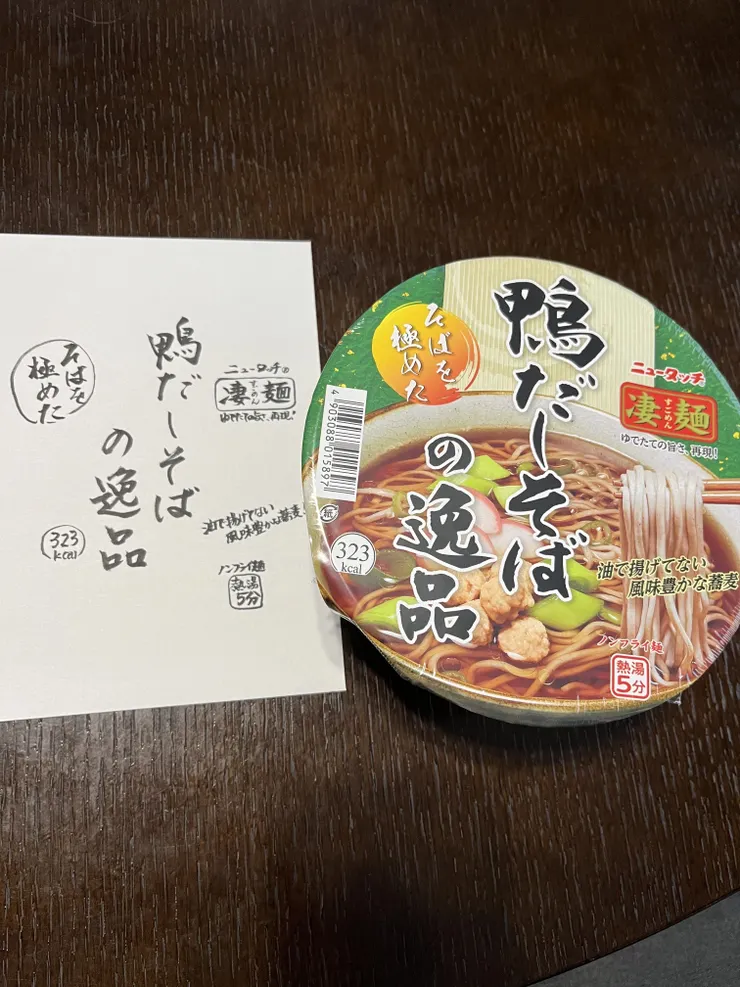 そばを
極めた
鴨だしそば
の逸品
ニュータッチ®
凄麺
すごめん
ゆでたての旨さ、再現!
油で揚げてない
風味豊かな蕎麦
323
kcal
ノンフライ麺
熱湯
5分
そばを
極めた
鴨だしそば
の逸品
ニュータッチ
凄麺
すごめん
ゆでたての旨さ、再現!
4903088015897
紙
323
kcal
油で揚げてない
風味豊かな蕎麦
ノンフライ麺
熱湯
5分